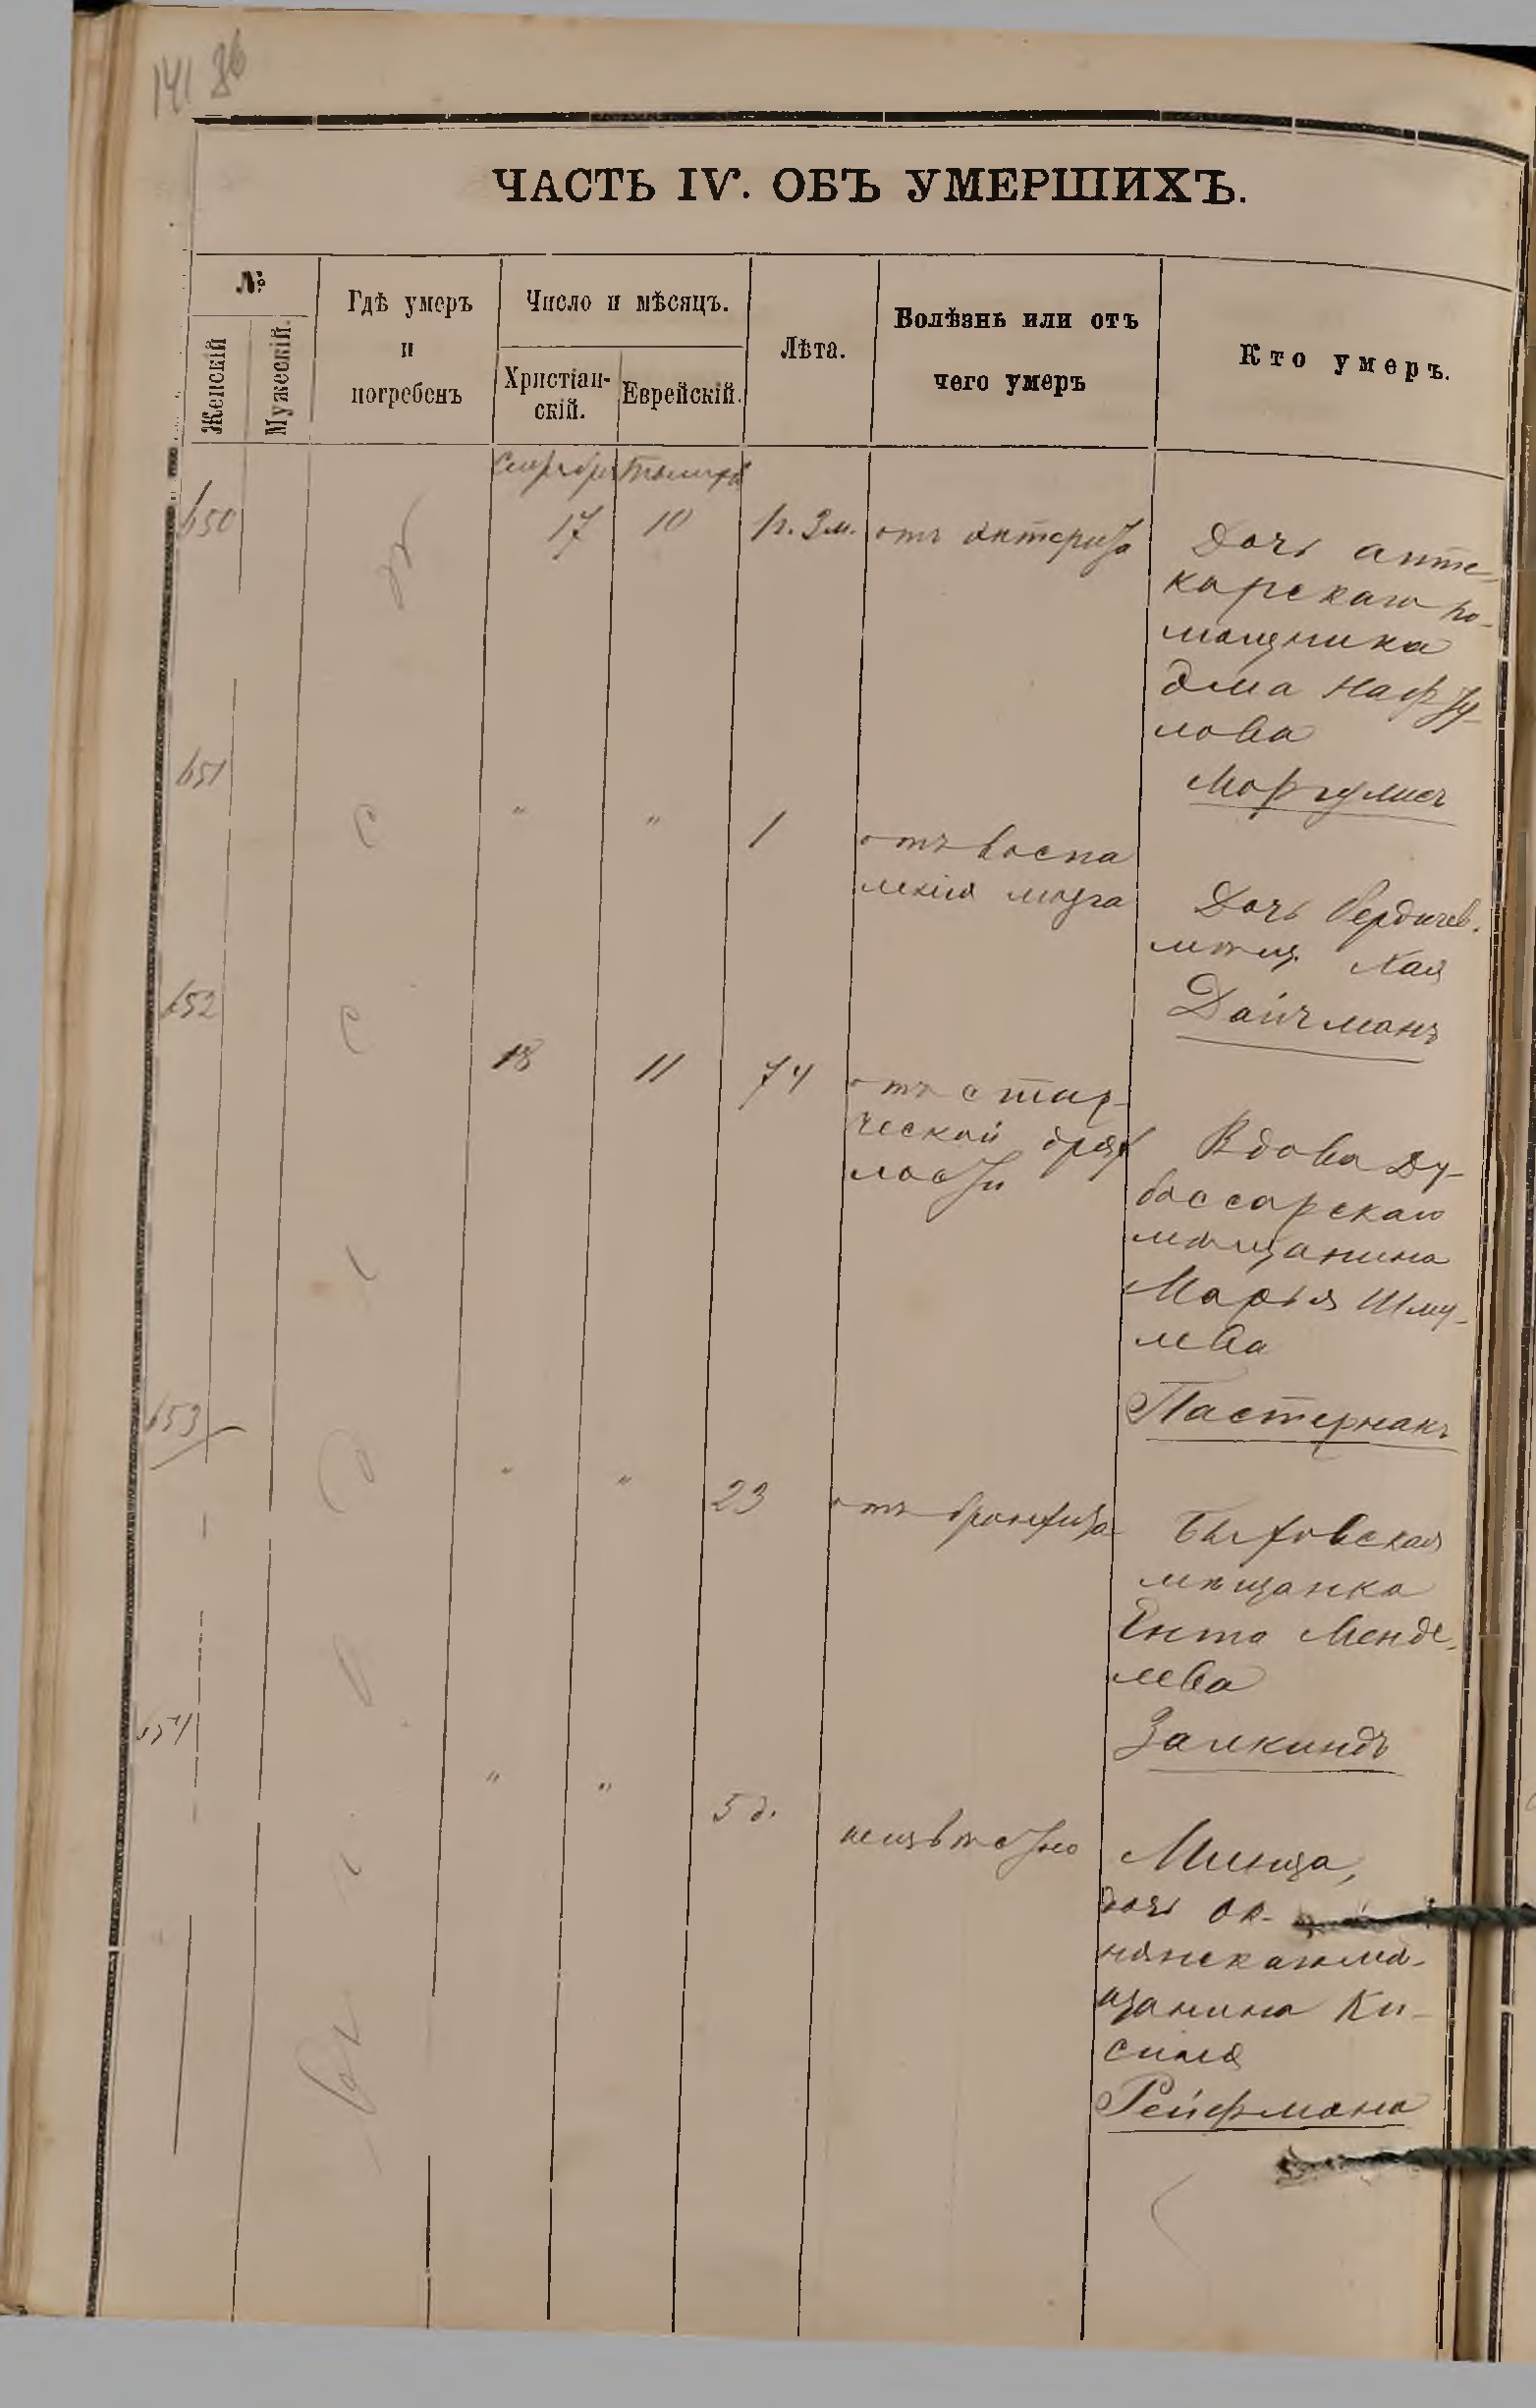 141 86
ЧАСТЬ IV. ОБЪ УМЕРШИХЪ.
№
Женскій
Мужескій.
Гдѣ умеръ
и
погребенъ
Число и мѣсяцъ.
Христіан-
скій.
Еврейскій.
Лѣта.
Болѣзнь или отъ
чего умеръ
Кто умеръ.
650
17
10
1г. 3м.
отъ
Дочь апте-
карскаго по-
мощника
Нафту-
лова
Моргулисъ
651
"
"
1
отъ воспа
ленія мозга
Дочь бердичев.
мѣщ. Хая
Дайчманъ
652
18
11
74
отъ стар-
ческой дрях
лости
Вдова Ду-
боссарскаго
мѣщанина
Марья Шму-
лева
Пастернакъ
653
"
"
23
отъ бронхита
Быховская
мѣщанка
Ента Менде-
лева
Залкиндъ
654
"
"
5 д.
неизвѣстно
дочь
мѣ-
щанина Ки-
сила
Рейфмана